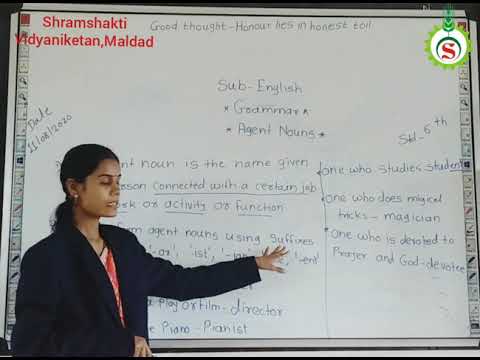 Shramshakti
Vidyaniketan,Maldad
Good thought-Honour lies in honest toil.
S
Date
11/08/2020
Sub-English
*Grammar*
*Agent Nouns*
Std-6th
noun is the name given
connected with a certain job
or activity or function
agent nouns using suffixes
'ist',
Play or film-director
Piano-Pianist
one who studies student
one who does magical
tricks-magician
one who is devoted to
Prayer and God-devotee